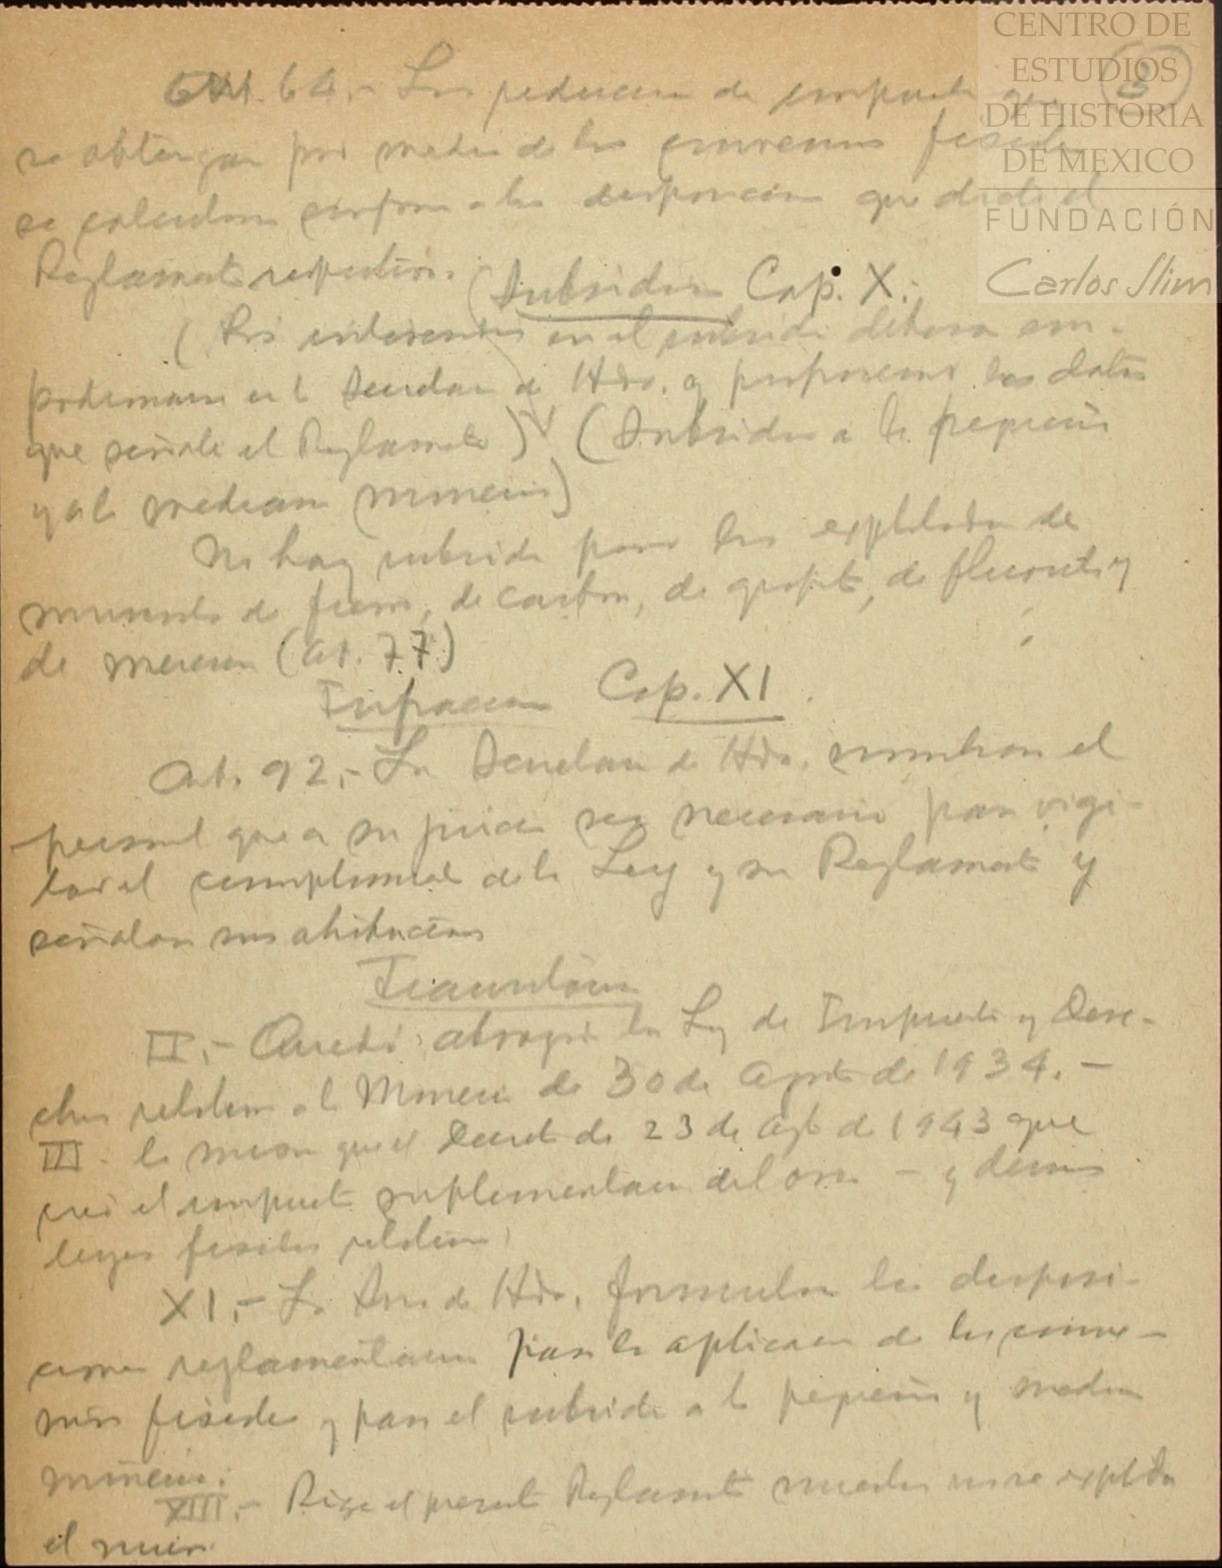 CENTRO DE
ESTUDIOS
DE HISTORIA
DE MEXICO
FUNDACIÓN
Carlos Slim
8
Art. 64.- Las reducciones de impuestos que
se obtengan por medio de los convenios fiscales
se calcularán conforme a las disposiciones que dicte el
Reglamento respectivo.
Subsidios Cap. X.-
(Los interesados en el subsidio deberán em-
padronarse en la Secretaría de Hda. y proporcionar los datos
que señale el Reglamento) (Subsidios a la pequeña
y a la mediana minería)
No hay subsidio para los explotadores de
minerales de fierro, de carbón, de grafito, de fluorita y
de mercurio (art. 77)
Infracciones Cap. XI
Art. 92.- La Secretaría de Hda. nombrará el
personal que a su juicio sea necesario para vigi-
lar el cumplimiento de la Ley y su Reglamento y
señalará sus atribuciones
Transitorios
II.- Quedó abrogada la Ley de Impuestos y Dere-
chos relativos a la Minería de 30 de Agosto de 1934.-
III- lo mismo que el Decreto de 23 de Agto de 1943 que
creó el impuesto suplementario del oro - y demás
leyes fiscales relativas
XI.- La Sría de Hda. formulará las disposi-
ciones reglamentarias para la aplicación de los conve-
nios fiscales y para el subsidio a la pequeña y mediana
minería.
XIII.- Rige el presente Reglamento mientras no se expida
el nuevo.